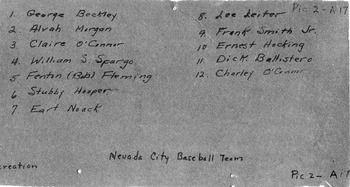 Pic 2 - A17
1. George Beckley
2 Alvah Morgan
3 Claire O'Connor
4. William S. Spargo
5 Fenton (Bob) Fleming
6 Stubby Hooper
7 Earl Noack
8. Lee Leiter
9. Frank Smith Jr.
10 Ernest Hocking
11 Dick Ballistero
12. Charley O'Connor
Nevada City Baseball Team
creation
Pic 2 - A17